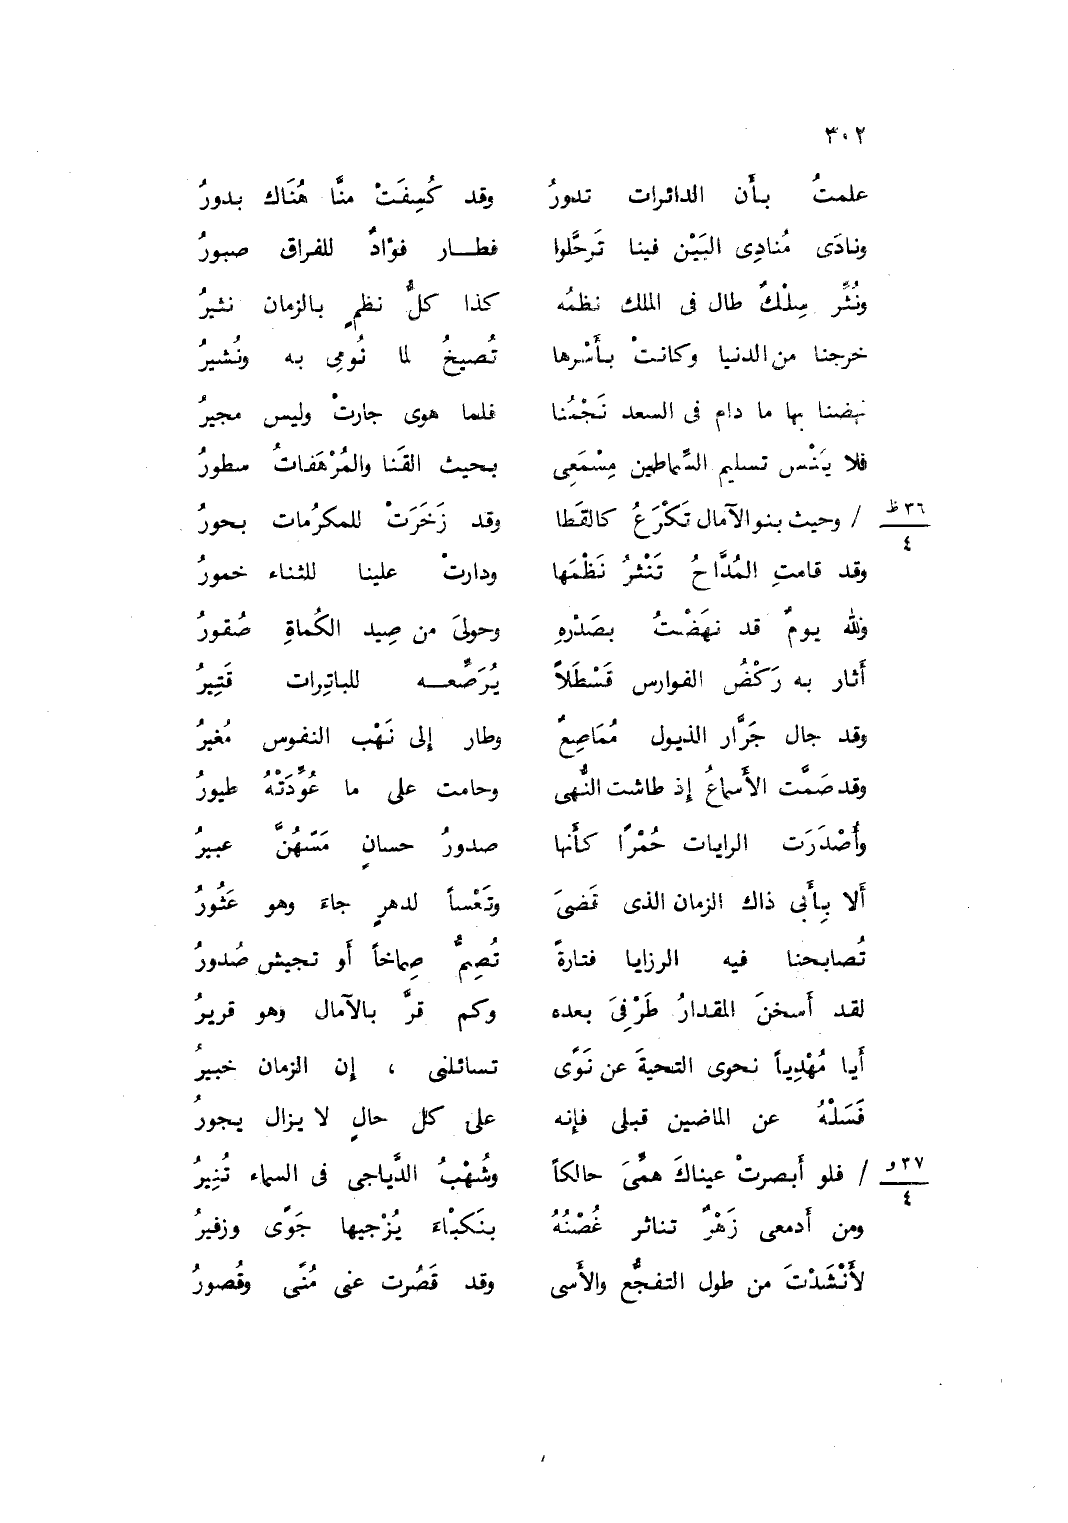 ٣٠٢
علمتُ بأَن الدائرات تدورُ وقد كُسِفَتْ منَّا هُنَاك بدورُ
ونادَى مُنادِى البَيْن فينا تَرحَّلوا فطــار فؤادٌ للفراق صبورُ
ونُثِّر سِلْكٌ طال فى الملك نظمُه كذا كلُّ نظمٍ بالزمان نثيرُ
خرجنا من الدنيا وكانتْ بأَسْرها تُصيخُ لما نُومِى به ونُشيرُ
نهضنا بها ما دام فى السعد نَجْمُنا فلما هوى جارتْ وليس مجيرُ
فلا يَنْس تسليم السِّماطين مِسْمَعِى بحيث القَنا والمُرْهَفاتُ سطورُ
٣٦ ظ / وحيث بنو الآمال تَكْرَعُ كالقَطا وقد زَخَرَتْ للمكرُمات بحورُ
٤
وقد قامتِ المُدَّاحُ تَنْثرُ نَظْمَها ودارتْ علينا للثناء خمورُ
ولله يومٌ قد نهَضْتُ بصَدْرهِ وحولىَ من صِيد الكُماةِ صُقورُ
أَثار به رَكْضُ الفوارس قَسْطَلاً يُرَصِّعــه للباتِرات قَتِيرُ
وقد جال جَرَّار الذيول مُمَاصِعٌ وطار إلى نَهْب النفوس مُغيرُ
وقد صَمَّت الأَسماعُ إذ طاشت النُّهى وحامت على ما عُوِّدَتْهُ طيورُ
وأُصْدَرَت الرايات حُمْرًا كأَنها صدورُ حسانٍ مَسّهُنَّ عبيرُ
أَلا بِأَبى ذاك الزمان الذى قَضىَ وتَعْساً لدهرٍ جاءَ وهو عَثُورُ
تُصابحنا فيه الرزايا فتارةً تُصِمُّ صِماخاً أَو تجيش صُدورُ
لقد أَسخنَ المقدارُ طَرْفىَ بعده وكم قرَّ بالآمال وهو قريرُ
أَيا مُهْدِياً نحوى التحيةَ عن نَوًى تسائلنى ، إن الزمان خبيرُ
فَسَلْهُ عن الماضين قبلى فإنه على كل حالٍ لا يزال يجورُ
٣٧ و / فلو أَبصرتْ عيناكَ همِّىَ حالكاً وشُهْبُ الدَّياجى فى السماء تُنِيرُ
٤
ومن أَدمعى زَهْرٌ تناثر غُصْنُهُ بنَكْباءَ يُزْجيها جَوًى وزفيرُ
لأَنْشَدْتَ من طول التفجُّع والأَسى وقد قَصُرت عنى مُنًى وقُصورُ